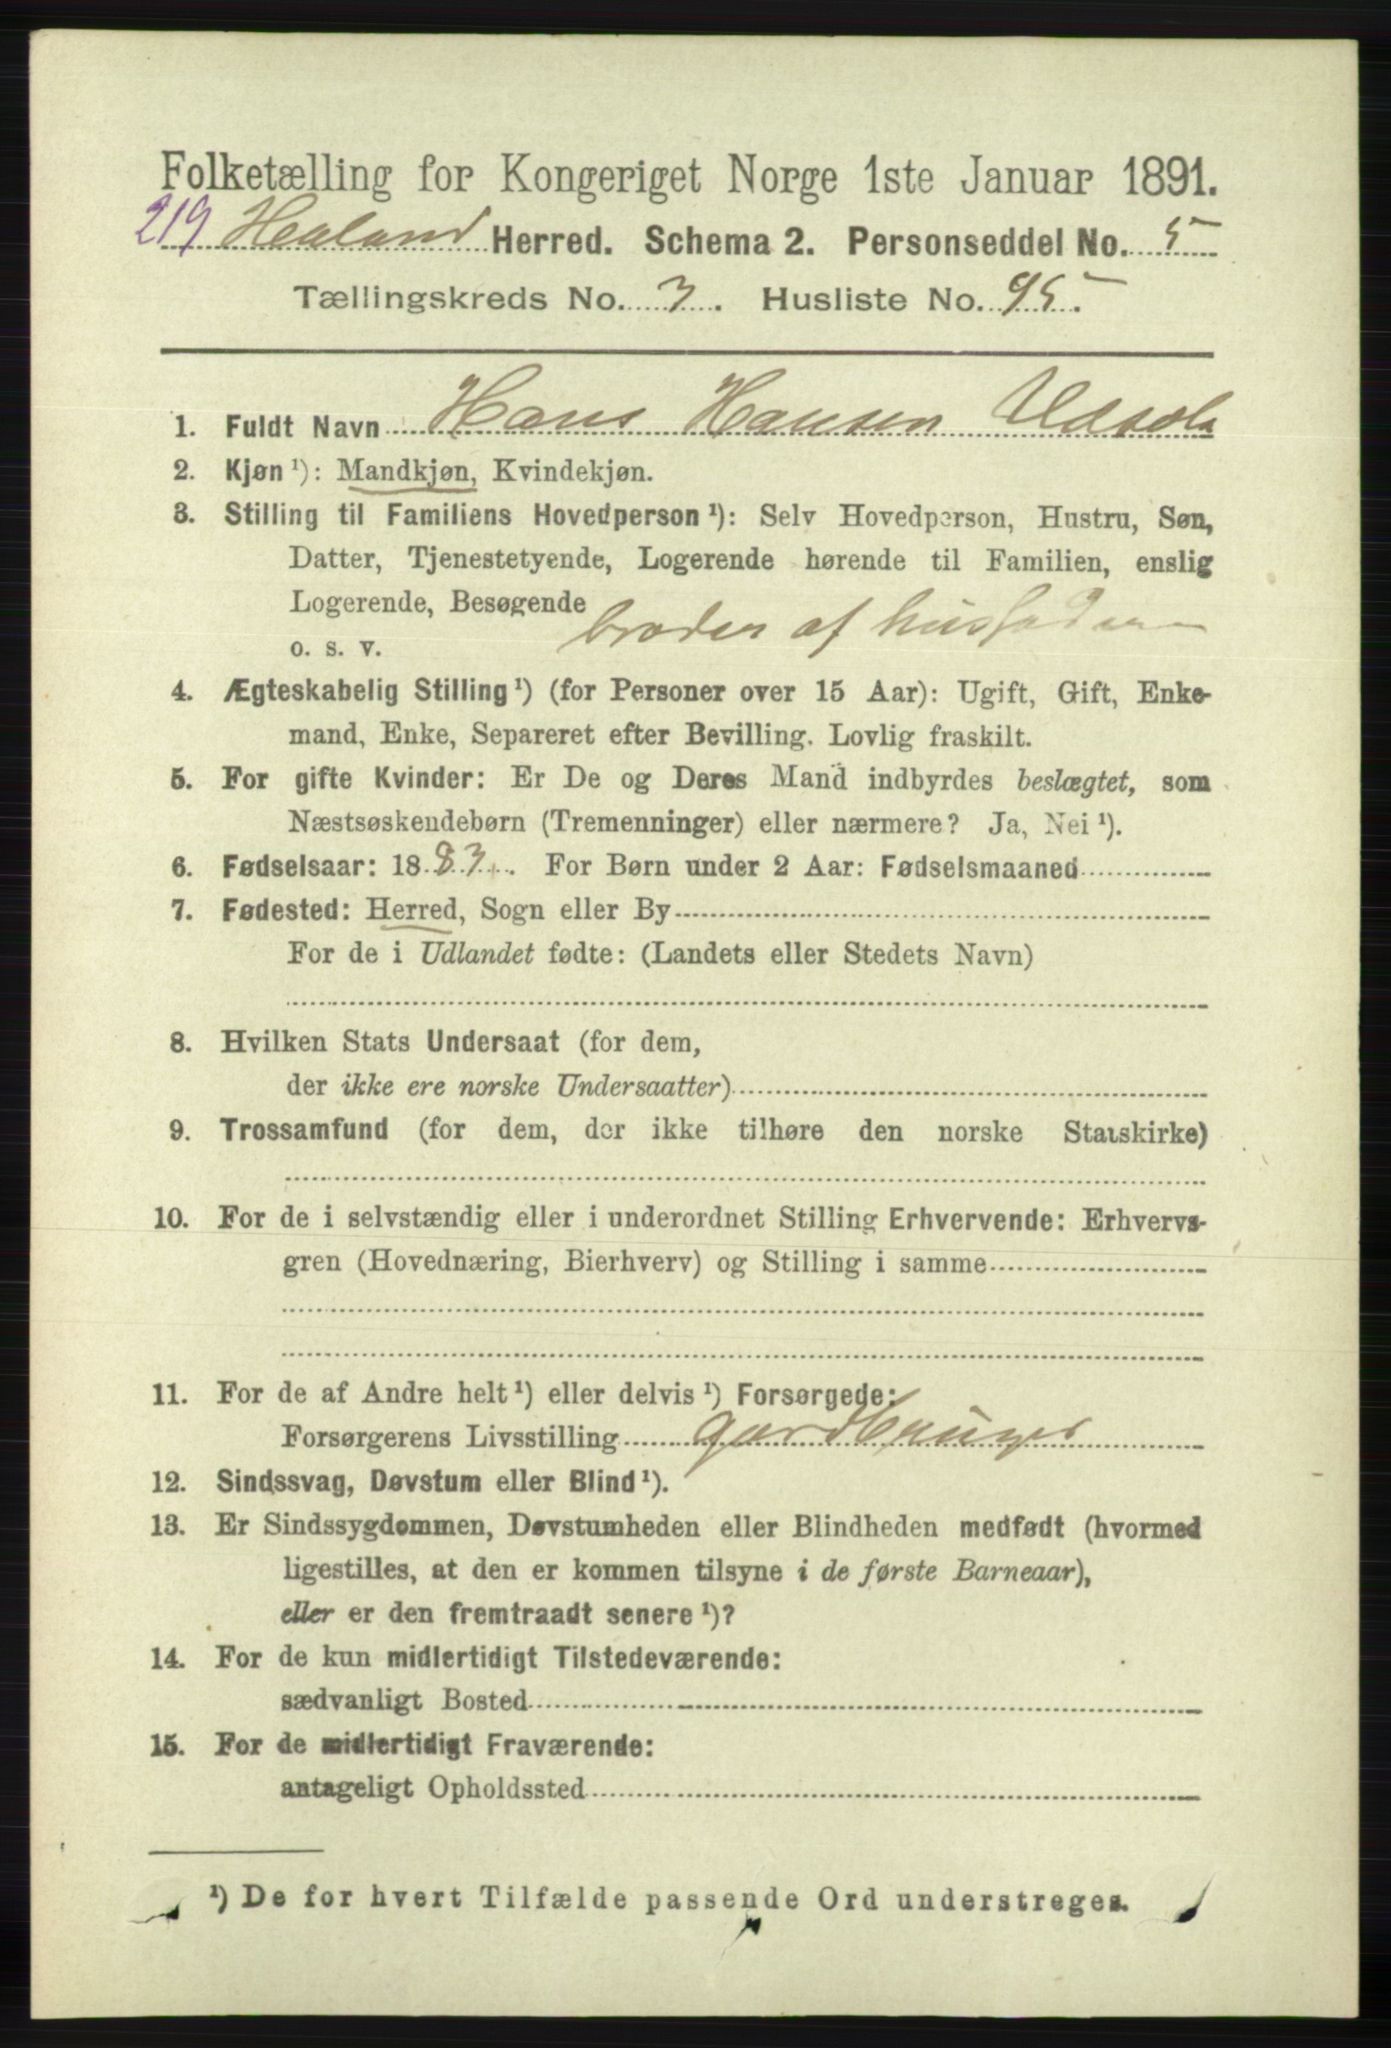 Folketælling for Kongeriget Norge 1ste Januar 1891.
219 Herred. Schema 2. Personseddel No. 5
Tællingskreds No. 3. Husliste No. 95.
1. Fuldt Navn Hans Hansen
2. Kjøn ¹): Mandkjøn, Kvindekjøn.
3. Stilling til Familiens Hovedperson ¹): Selv Hovedperson, Hustru, Søn,
Datter, Tjenestetyende, Logerende hørende til Familien, enslig
Logerende, Besøgende
o. s. v. broder af husfaderen
4. Ægteskabelig Stilling ¹) (for Personer over 15 Aar): Ugift, Gift, Enke-
mand, Enke, Separeret efter Bevilling. Lovlig fraskilt.
5. For gifte Kvinder: Er De og Deres Mand indbyrdes beslægtet, som
Næstsøskendebørn (Tremenninger) eller nærmere? Ja, Nei ¹).
6. Fødselsaar: 1883. For Børn under 2 Aar: Fødselsmaaned
7. Fødested: Herred, Sogn eller By
For de i Udlandet fødte: (Landets eller Stedets Navn)
8. Hvilken Stats Undersaat (for dem,
der ikke ere norske Undersaatter)
9. Trossamfund (for dem, der ikke tilhøre den norske Statskirke)
10. For de i selvstændig eller i underordnet Stilling Erhvervende: Erhvervs-
gren (Hovednæring, Bierhverv) og Stilling i samme
11. For de af Andre helt ¹) eller delvis ¹) Forsørgede:
Forsørgerens Livsstilling
12. Sindssvag, Døvstum eller Blind ¹).
13. Er Sindssygdommen, Døvstumheden eller Blindheden medfødt (hvormed
ligestilles, at den er kommen tilsyne i de første Barneaar),
eller er den fremtraadt senere ¹)?
14. For de kun midlertidigt Tilstedeværende:
sædvanligt Bosted
15. For de midlertidigt Fraværende:
antageligt Opholdssted
¹) De for hvert Tilfælde passende Ord understreges.